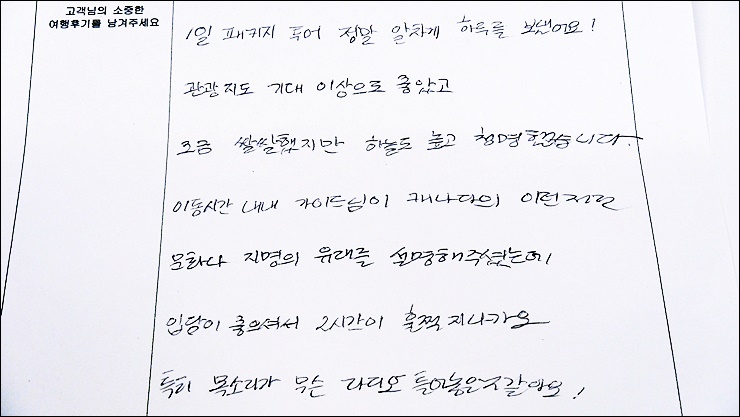 고객님의 소중한
여행후기를 남겨주세요
1일 패키지 투어 정말 알차게 하루를 보냈어요!
관광지도 기대 이상으로 좋았고
조금 쌀쌀했지만 하늘도 높고 청명했습니다.
이동시간 내내 가이드님이 캐나다의 이런저런
문화나 지명의 유래를 설명해주셨는데
입담이 좋으셔서 2시간이 훌쩍 지나가요
특히 목소리가 무슨 라디오 틀어놓은줄 같아요!